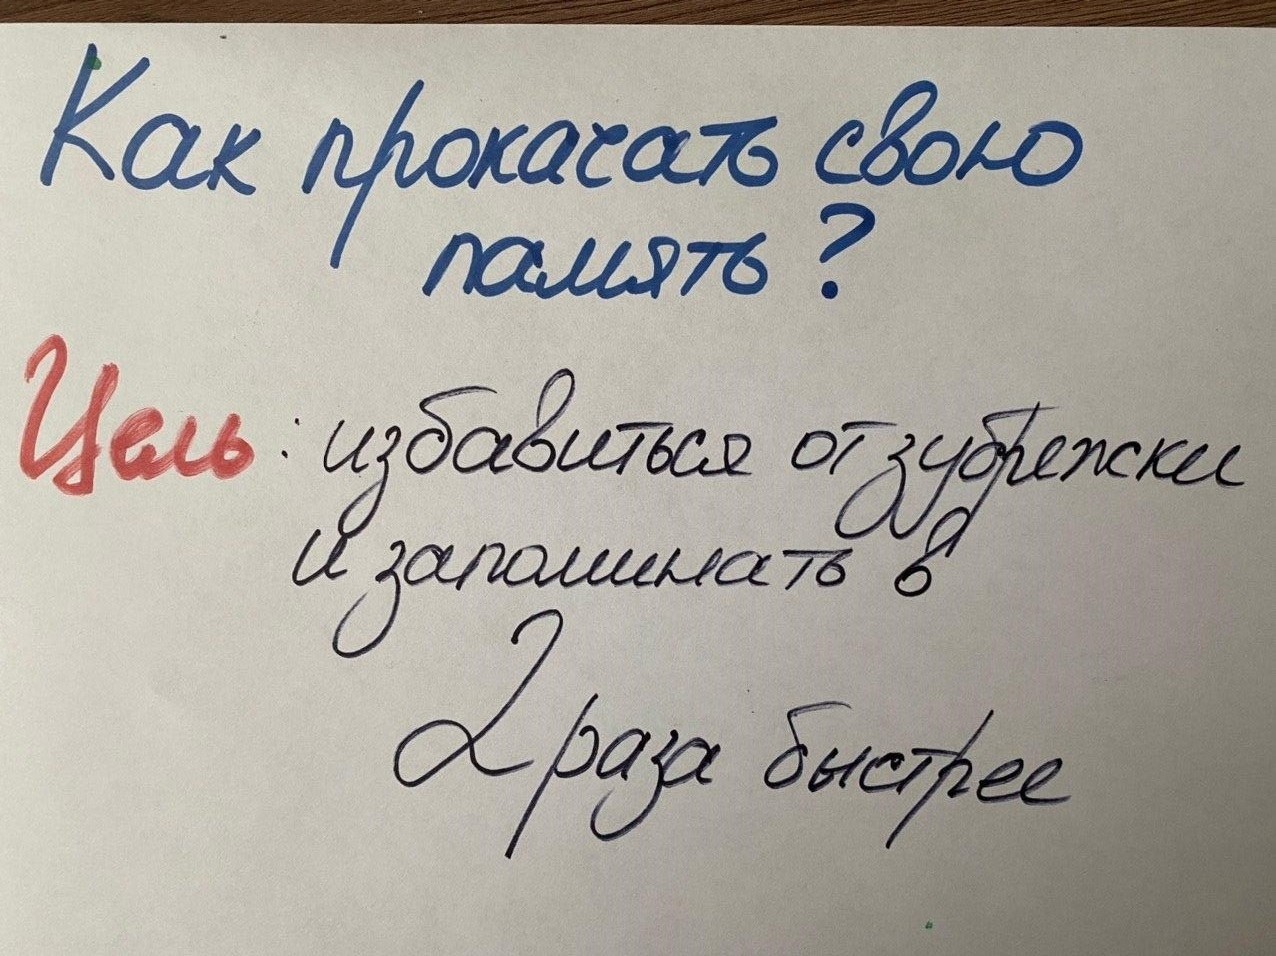 Как прокачать свою
память?
Цель: избавиться от зубрежки
и запоминать в
2 раза быстрее